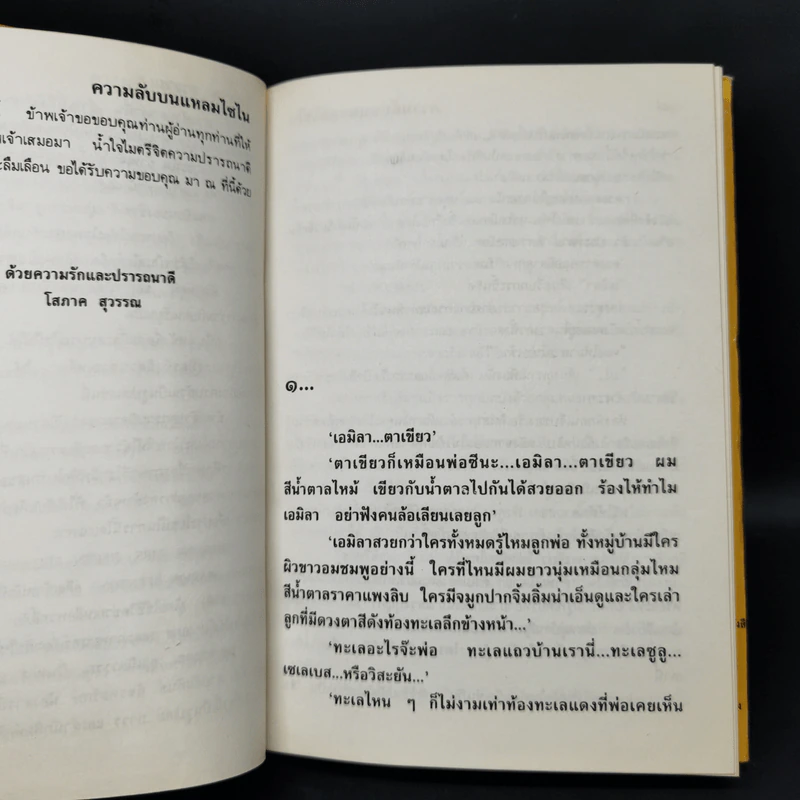 ความลับบนแหลมไซไน
ข้าพเจ้าขอขอบคุณท่านผู้อ่านทุกท่านที่ให้
เจ้าเสมอมา น้ำใจไมตรีจิตความปรารถนาดี
ลืมเลือน ขอได้รับความขอบคุณ มา ณ ที่นี้ด้วย
ด้วยความรักและปรารถนาดี
โสภาค สุวรรณ
๑...
‘เอมิลา...ตาเขียว’
‘ตาเขียวก็เหมือนพ่อซีนะ...เอมิลา...ตาเขียว ผม
สีน้ำตาลไหม้ เขียวกับน้ำตาลไปกันได้สวยออก ร้องไห้ทำไม
เอมิลา อย่าฟังคนล้อเลียนเลยลูก’
‘เอมิลาสวยกว่าใครทั้งหมดรู้ไหมลูกพ่อ ทั้งหมู่บ้านมีใคร
ผิวขาวอมชมพูอย่างนี้ ใครที่ไหนมีผมยาวนุ่มเหมือนกลุ่มไหม
สีน้ำตาลราคาแพงลิบ ใครมีจมูกปากจิ้มลิ้มน่าเอ็นดูและใครเล่า
ลูกที่มีดวงตาสีดังท้องทะเลลึกข้างหน้า...’
‘ทะเลอะไรจ๊ะพ่อ ทะเลแถวบ้านเรานี่...ทะเลซูลู...
เซเลเบส...หรือวิสะยัน...’
‘ทะเลไหน ๆ ก็ไม่งามเท่าท้องทะเลแดงที่พ่อเคยเห็น